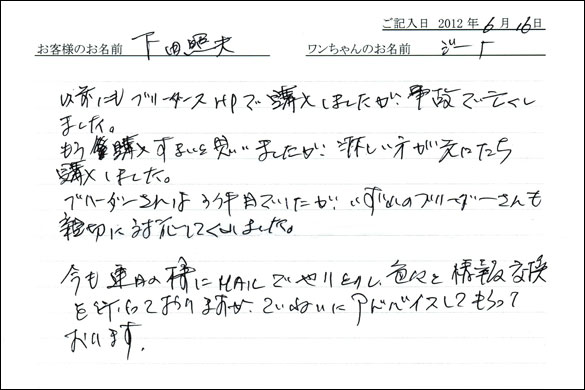 ご記入日 2012年6月16日
お客様のお名前 下田照夫 ワンちゃんのお名前 ジート
以前にもブリーダースHPで購入しましたが、事故で亡くし
ました。
もう購入すまいと思いましたが、淋しい方が先にたち
購入しました。
ブリーダーさんは3件目でしたが、いずれのブリーダーさんも
親切に対応してくれました。
今も毎日の様にMAILでやりとりし、色々と情報交換
を行っておりますが、ていねいにアドバイスしてもらって
おります。